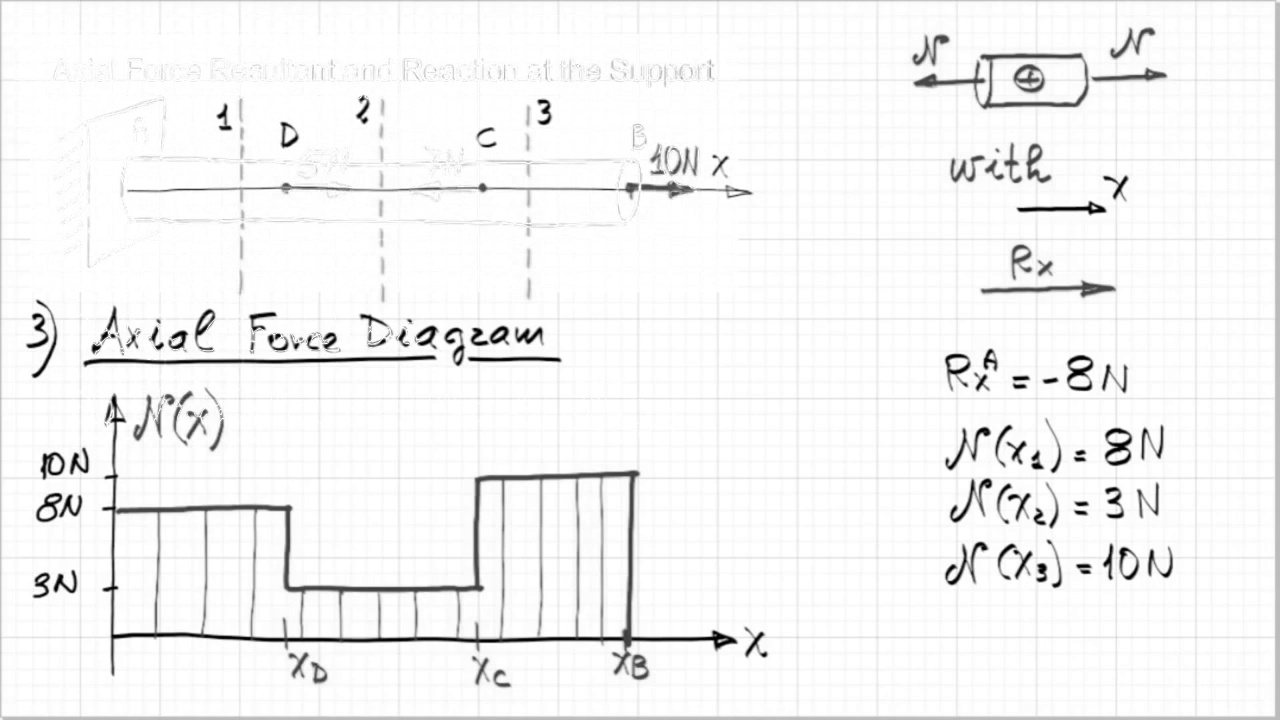 Axial Force Resultant and Reaction at the Support
1 2 3
A D C B
5N 7N 10N x
3) Axial Force Diagram
N(x)
10N
8N
3N
x_D x_C x_B x
N + N
with
x
Rx
Rx^A = -8N
N(x₁) = 8N
N(x₂) = 3N
N(x₃) = 10N